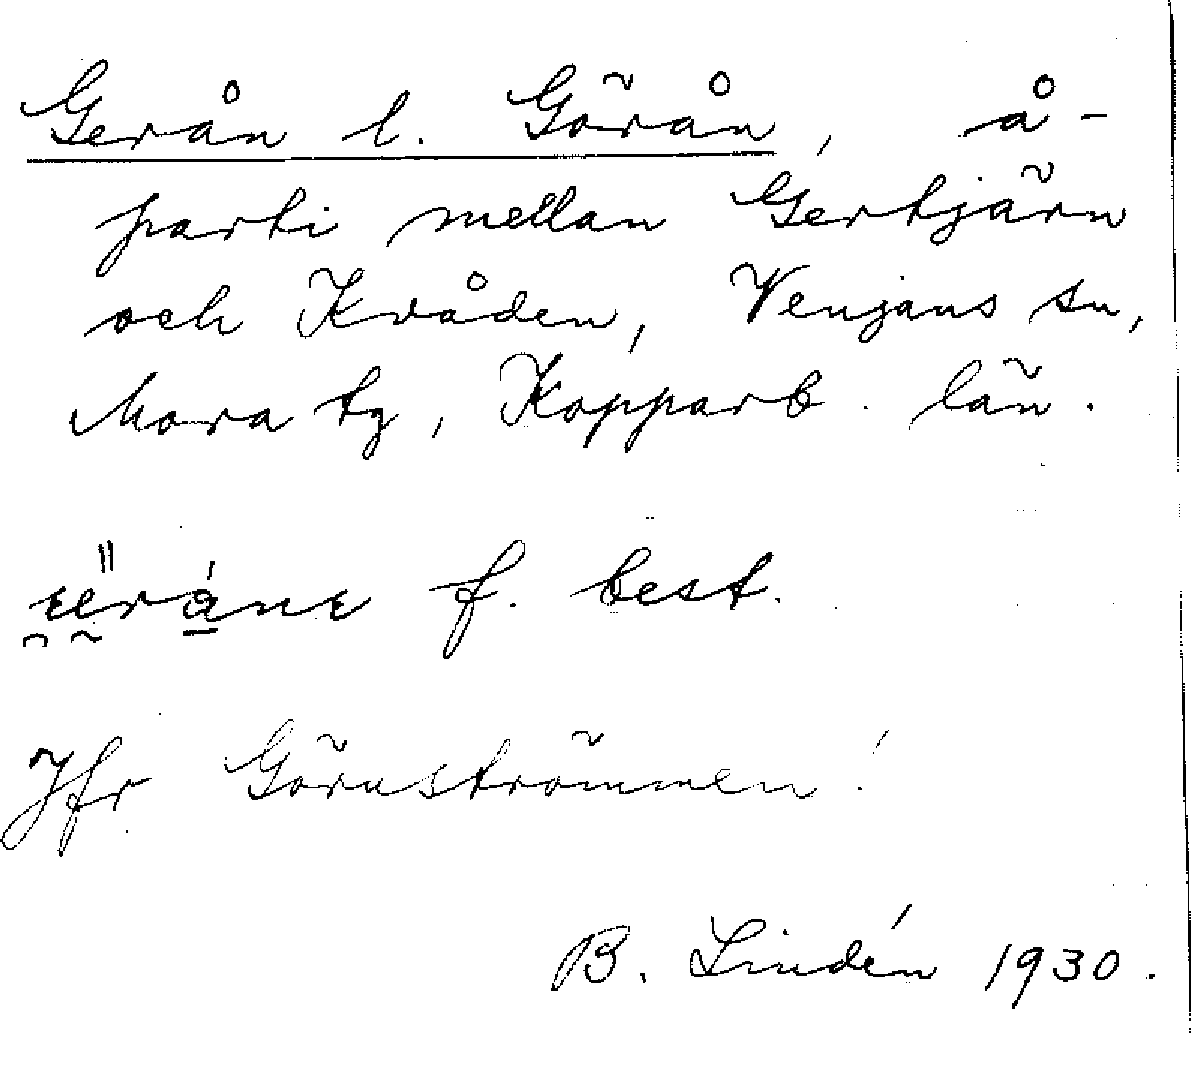 Gerån l. Görån, å-
parti mellan Gertjärn
och Kvåden, Venjans sn,
Mora tg, Kopparb. län.
f. best.
Jfr Görnströmmen!
B. Lindén 1930.